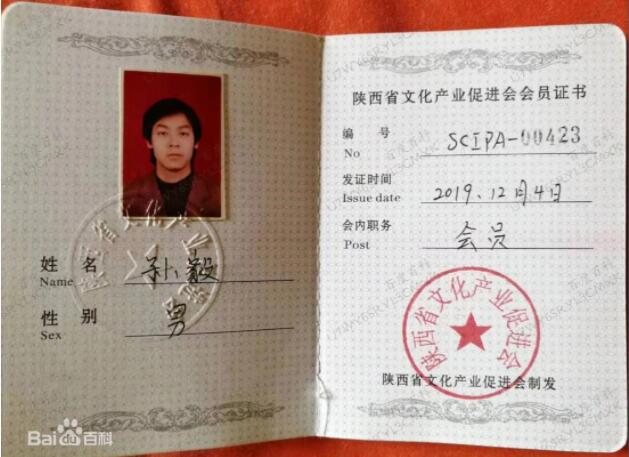 姓 名
Name
孙毅
性 别
Sex
男
陕西省文化产业促进会
陕西省文化产业促进会会员证书
编 号
No
SCIPA-00423
发证时间
Issue date
2019.12月4日
会内职务
Post
会员
陕西省文化产业促进会
陕西省文化产业促进会制发
Bai百科